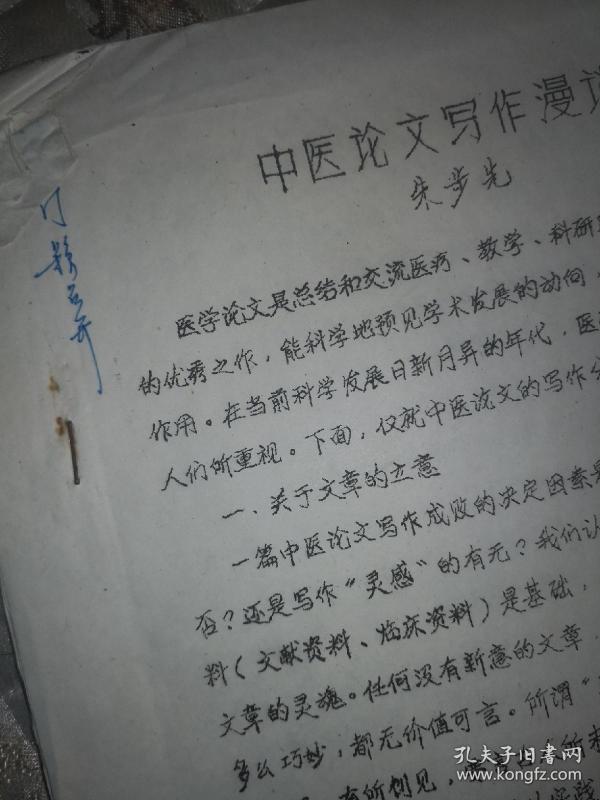 中医论文写作漫谈
朱步先
医学论文是总结和交流医疗、教学、科研
的优秀之作，能科学地预见学术发展的动向，
作用。在当前科学发展日新月异的年代，医
人们所重视。下面，仅就中医论文的写作
一、关于文章的立意
一篇中医论文写作成败的决定因素是
否？还是写作“灵感”的有无？我们认
料（文献资料、临床资料）是基础，
文章的灵魂。任何没有新意的文章，
多么巧妙，都无价值可言。所谓“
有所创见，
孔夫子旧书网
www.kongfz.com